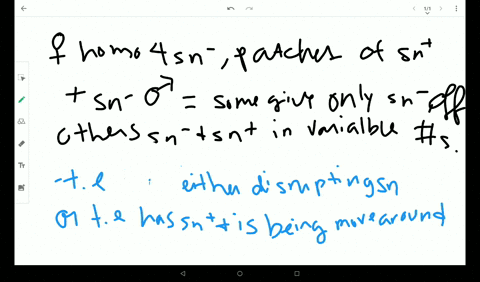 ♀ homo 4 sn⁻, patches of sn⁺
+ sn- ♂ = some give only sn⁻ off
others sn⁻ + sn⁺ in varialble #s.
-t.e either disruptingsn
or t.e has sn⁺ + is being move around
1/1
Tт